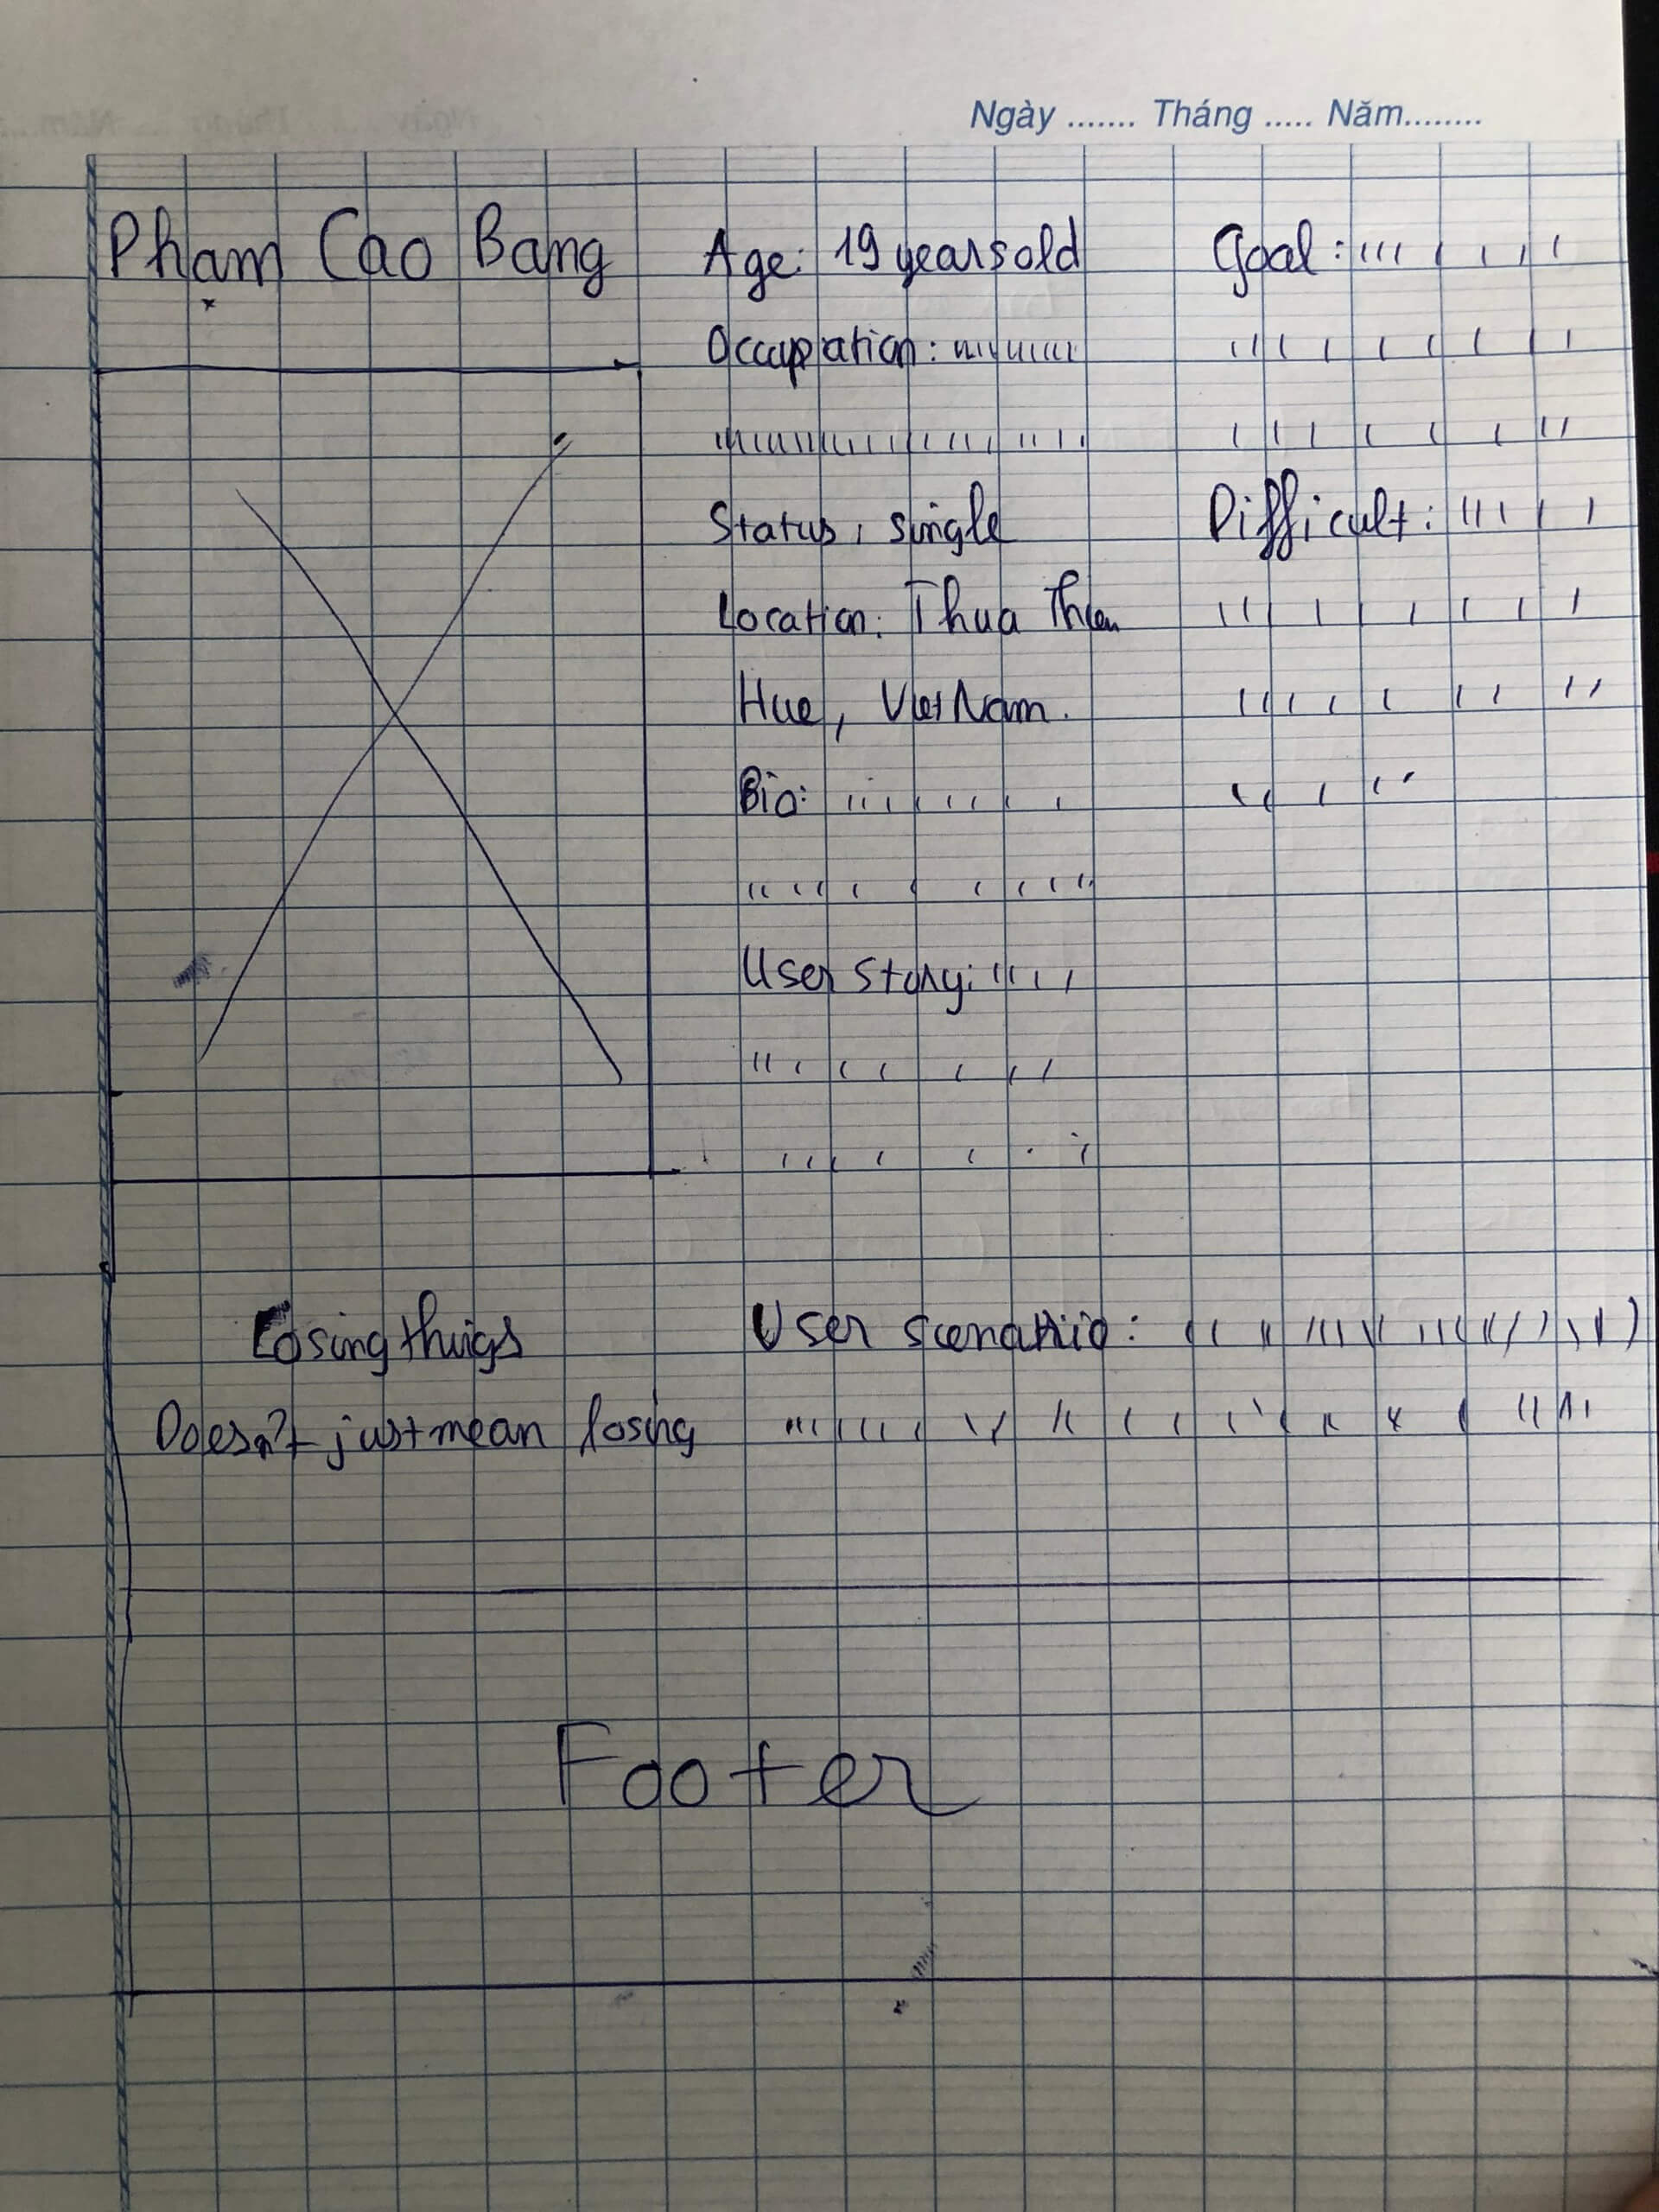 Ngày ....... Tháng ..... Năm........
Phạm Cao Bang
Age: 19 years old
Occupation:
Status: single
Location: Thua Thien
Hue, Viet Nam.
Bio:
User story:
Goal:
Difficult:
Losing thigs
Doesn't just mean losing
User scenario:
Footer